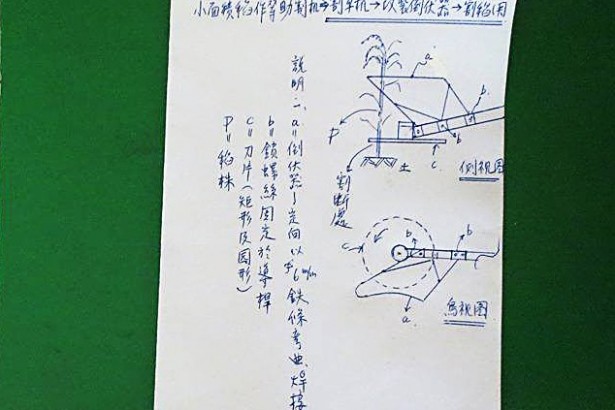 小面積稻作等助割机→割草机→以裝倒伏器→割稻用
說明：、a＝倒伏器，定向以φ6m/m鉄條弯曲、焊接
b＝鎖螺絲固定於導桿
c＝刀片（矩形及圓形）
P＝稻株
a
b
P
b
c
土
側視圖
割斷處
c
b
b
a
鳥視圖